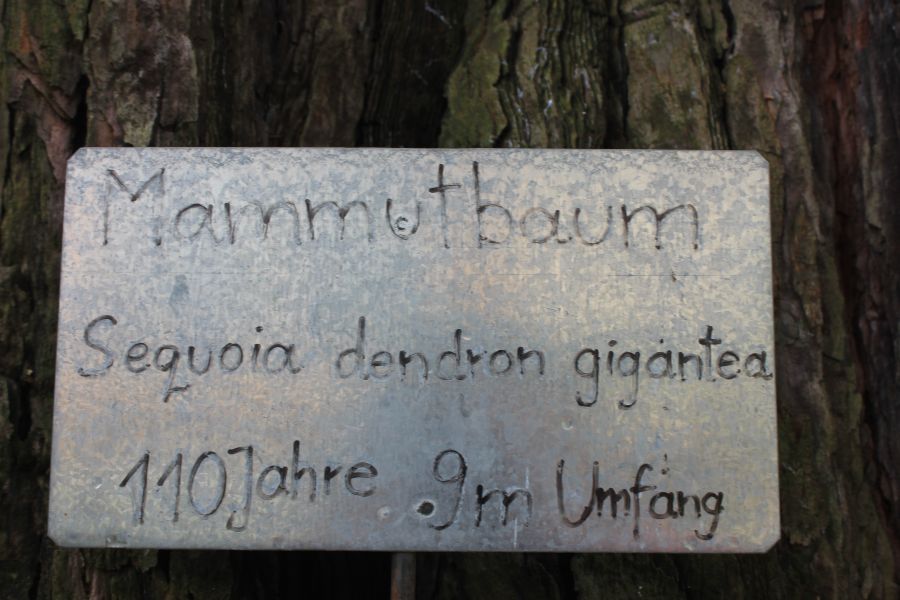 Mammutbaum
Sequoia dendron gigantea
110 Jahre 9m Umfang